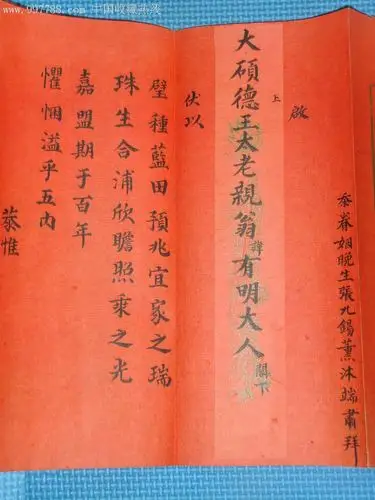 www.997788.com 中国收藏热线
忝眷姻晚生張九錫薰沐端肅拜
啟
上
大碩德王太老親翁諱有明大人閣下
伏以
璧種藍田預兆宜家之瑞
珠生合浦欣瞻照乘之光
嘉盟期于百年
懽悃溢乎五內
恭惟